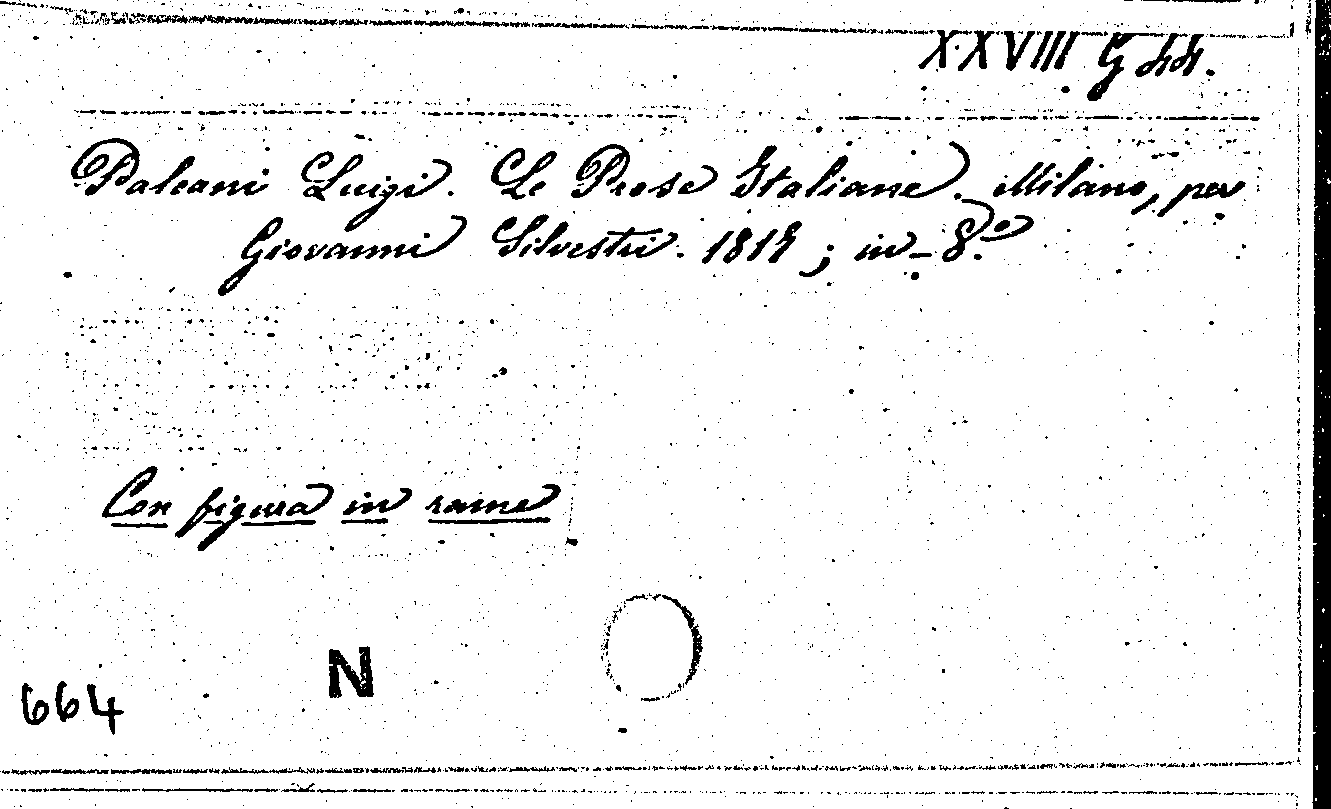 XXVIII G
Palcani Luigi. Le Prose Italiane. Milano, per
Giovanni Silvestri. 1817; in-8.º
Con figura in rame
N
664